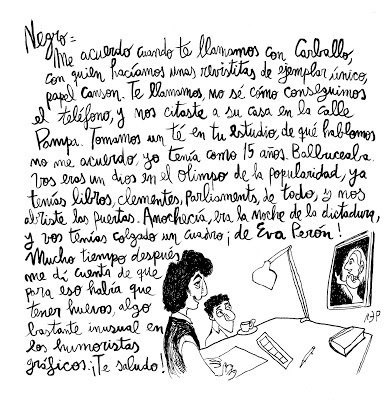 Negro=
Me acuerdo cuando te llamamos con Carballo,
con quien hacíamos unas revistitas de ejemplar único,
papel canson. Te llamamos, no sé cómo conseguimos
el teléfono, y nos citaste a su casa en la calle
Pampa. Tomamos un té en tu estudio, de qué hablamos
no me acuerdo, yo tenía como 15 años. Balbuceaba.
Vos eras un dios en el olimpo de la popularidad, ya
tenías libros, clementes, Parliaments, de todo, y nos
abriste las puertas. Amochecía, era la noche de la dictadura,
y vos tenías colgado un cuadro ¡de Eva Perón!
Mucho tiempo después
me dí cuenta de que
para eso había que
tener huevos, algo
bastante inusual en
los humoristas
gráficos. ¡Te saludo!